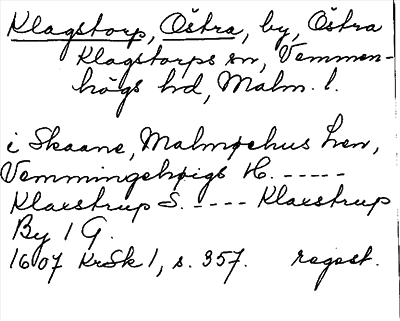 Klagstorp, Östra, by, Östra
Klagstorps sn, Vemmen-
högs hd, Malm. l.
i Skaane, Malmøehus Len,
Vemmingehøigs H. -----
Klaxstrup S. ---- Klaxstrup
By 1 G.
1607 KrSk 1, s. 357. regest.